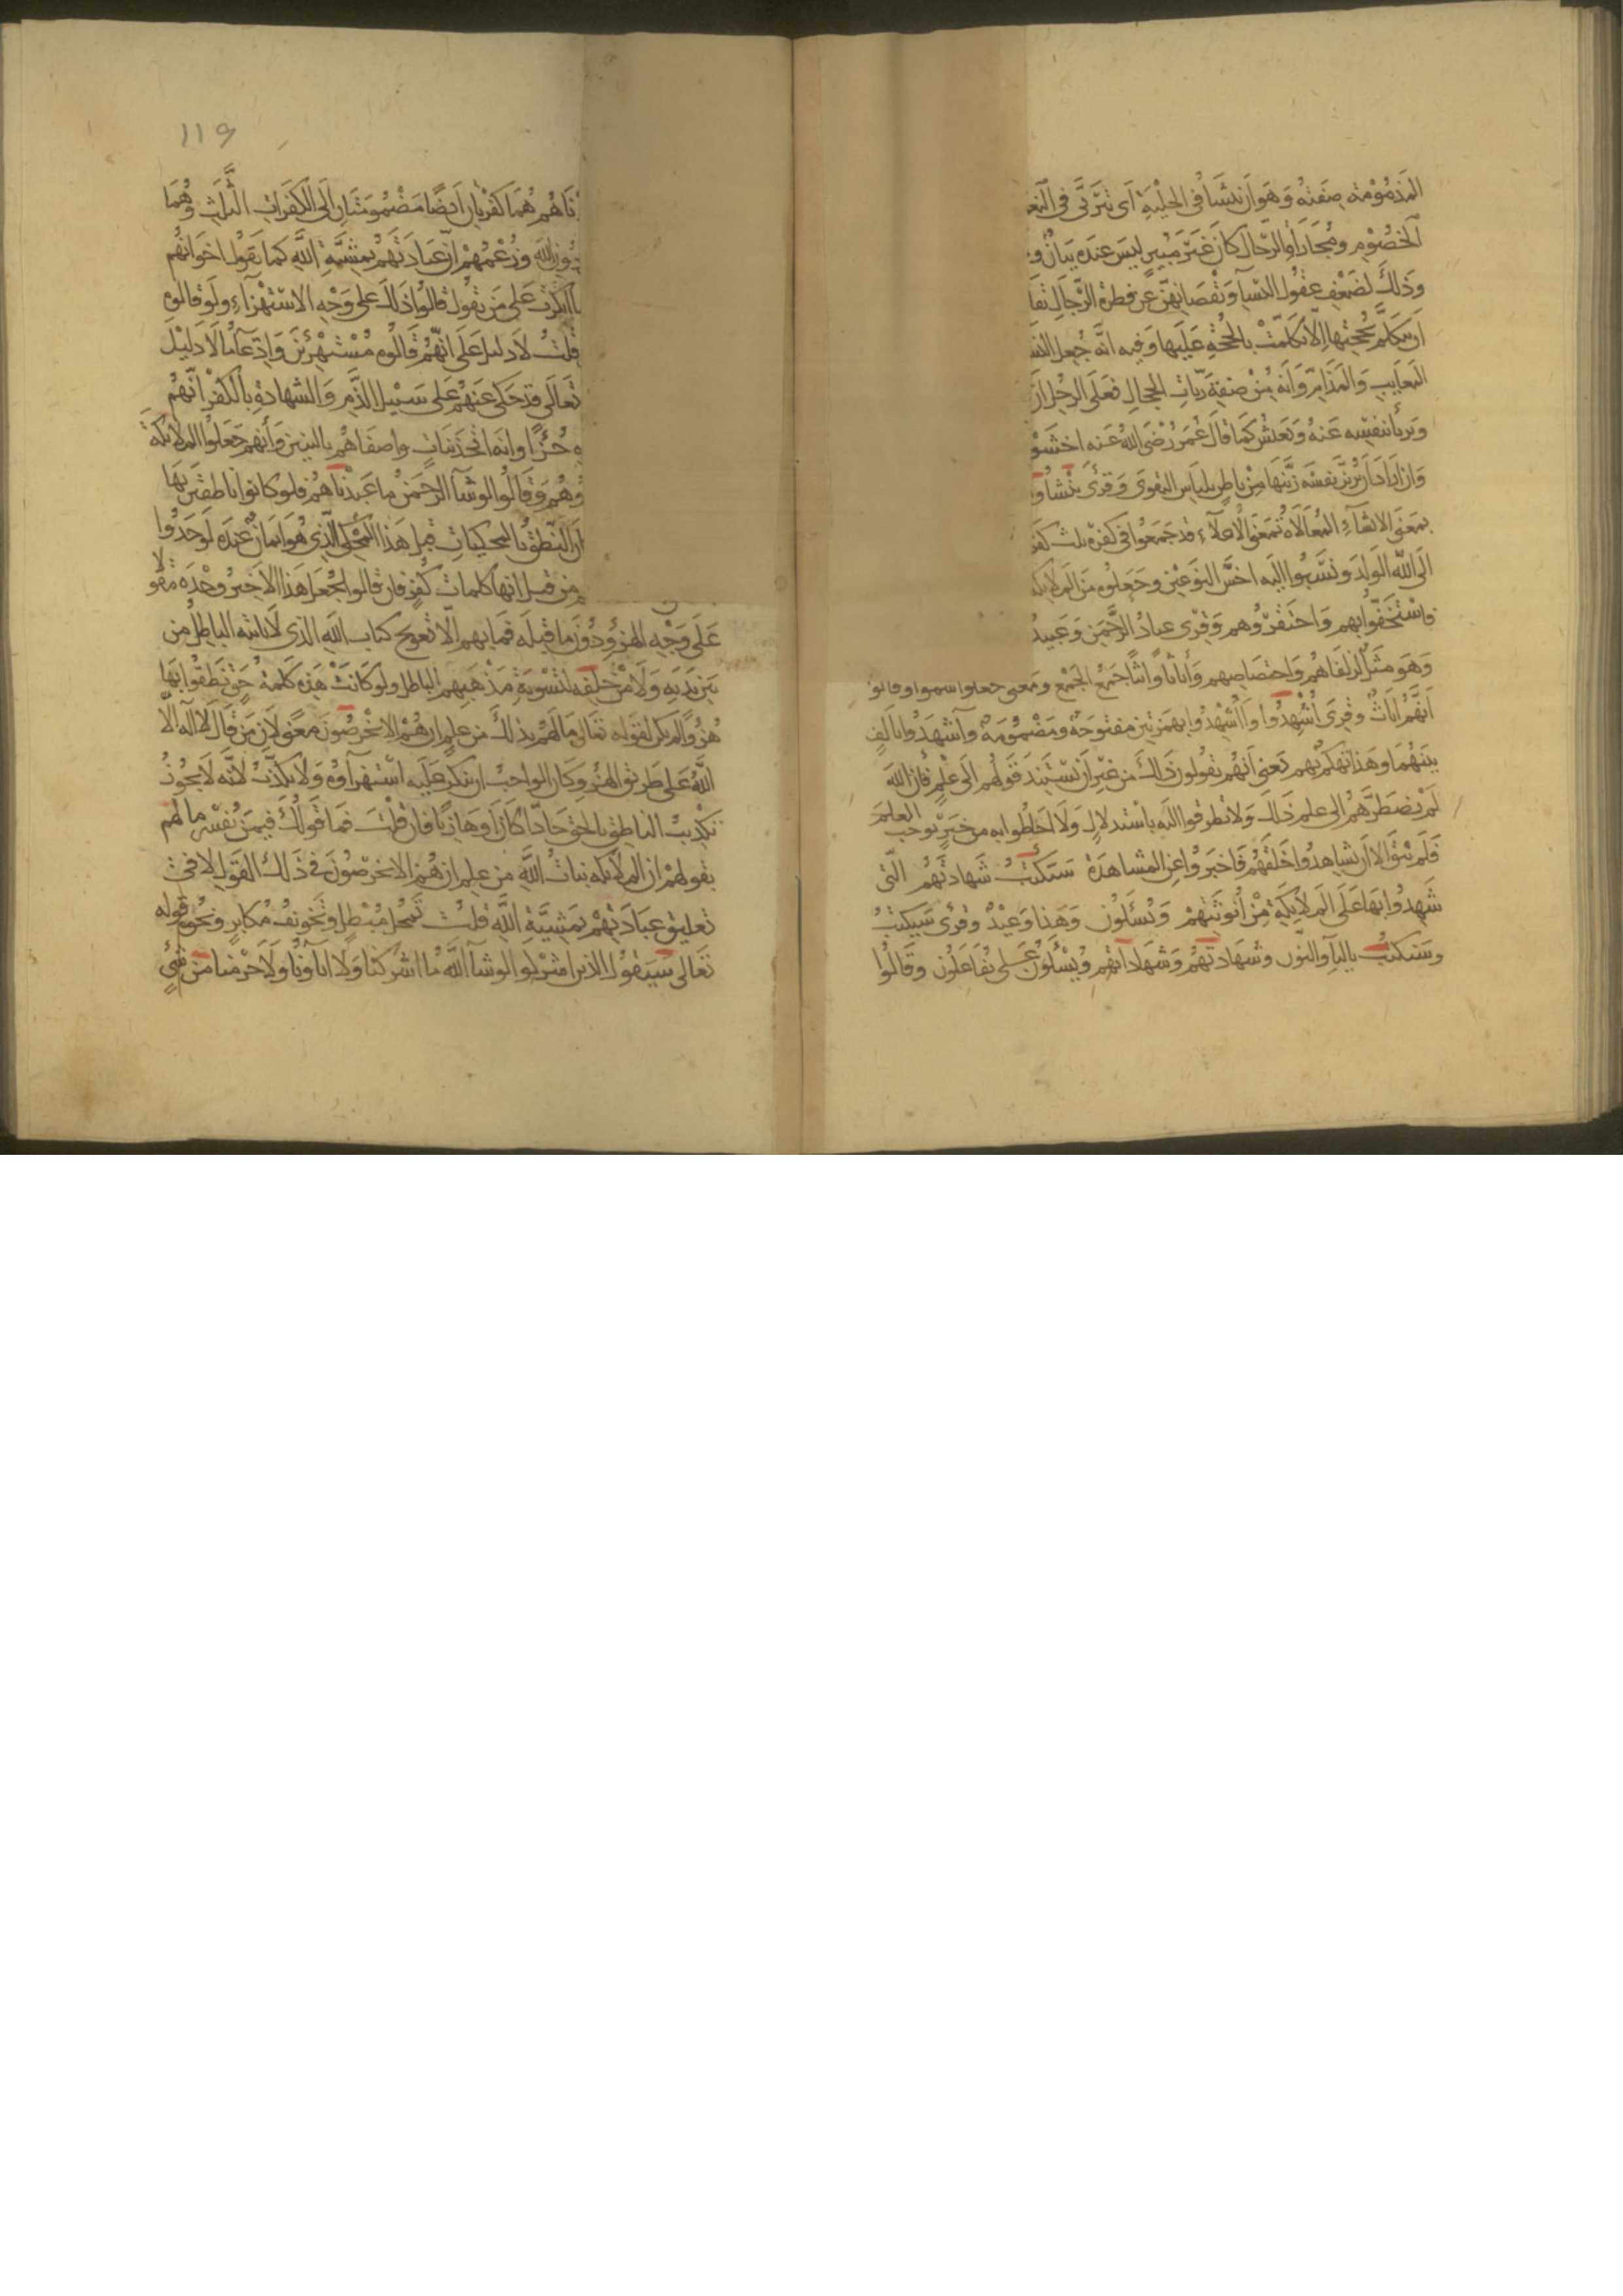 المَذمُومَة صِفَتُهُ وَهَوَ اَن يَنشَا فى الحِلْيَةِ اَى يَتَربَّى فى
الخصُوُمِ ومُجَاراة الرّجال كانَ غَيرَ مُبينٍ ليسَ عندَه بيَانٌ
وذلكَ لضَعْفِ عقُول النسآ ونقْصَانِهنَّ عن فطرة الرّجالِ
اَن تتكلّم بحُجّتِها الّا تكلّمتْ بالحُجّةِ عَلَيها وَفيه انّه جُعِل
المَعايبِ وَالمَذَامِّ وَاَنّه مِنْ صفةِ ربّاتِ الحِجال فعَلى الرجُلِ اَن
وَيربأ بنفسِه عَنهُ وَيَعيشَ كمَا قالَ عُمَرُ رَضى اللهُ عَنه اخشَوْ
وَان ارادَ اَن يُزَيّن نفسَه زيّنَها مِن باطنٍ بلباس التقوى وَقرئ يُنْشأ
بمَعنى الانشآءِ المُغالَاة بمَعنَى الاغلاءِ قد جَمعُوا فى كفرِهِ ثلث
الَى اللّه الوَلدَ وَنسَبُوا اِليه اخسَّ النوعَين وجَعَلوُه مَن المَلايكه
فاسْتَخَفّوا بهم وَاحتَقرُوهم وَقرِئ عبادُ الرَّحمَن وَعَبيدُ
وَهوَ مثَلٌ لزلفاهُم وَاختصَاصِهم وَاُناثًا واُنُثًا جَمْعُ الجَمْعِ وَمَعنى جعلوا سموا وقالوا
اَنهُم اناثٌ وقرِئَ اُشْهِدُوا وَاَاُشْهِدُوا بهمزتين مفتوحَة ومَضْمُومَة وآاشهدُوا بالَفٍ
بَينَهُما وَهذا تهكمٌ بهم يَعنى اَنهُم يقُولون ذَلك مِن غيرِ اَن يسْتَنِدَ قولهُم اِلى عِلمٍ فَاِنّ اللّهَ
لَم يَضطرَّهُم اِلى علمِ ذَلك وَلا تطرقوا اليَه باستدلالٍ وَلا احَاطُوا به من خَبَرٍ يُوجب العلمَ
فَلَم يَبْقَ الا اَن يشاهِدُوا خَلقَهُم فَاخبَروُا عن المشاهدَة سَتكتَبُ شَهادتُهُم التّى
شَهِدُوا بهَا عَلَى المَلايكةِ مِنْ اُنوثَتِهِمْ وَيُسئَلُون وَهَذا وَعيْدٌ وَقرِئَ سَيَكتُبُ
وسَنكتُبُ باليآءِ والنّون وشَهادتهُم وشَهادَاتُهم ويُسَّاءَلُون على يُفَاعَلُون وَقَالُوا
119
ناهُم هُمَا كفرَتانِ اَيضًا مَضْمُومَتانِ اِلَى الكفَراتِ الثلَثِ وَهُمَا
دُونِ اللّه وَزَعْمُهُمْ انَّ عبَادَتَهُم بمشيَّةِ اللّهِ كما يَقول اخوانهُم
ما انكرت عَلى مَن يقُولُ قالوُا ذَلكَ على وَجْهِ الاستهزآءِ ولَو قالوه
قُلْتُ لا دَليلَ عَلَى اَنّهُم قَالُوه مُسْتَهزئينَ وَادّعَآءُ مالا دَليْلَ
تعَالَى قد حَكى عَنهُم عَلى سَبيْل الذَّمِ وَالشهادةِ بالكفْر اَنّهُم
جُزءًا واَنهُ اتخذ بَناتٍ واصفَاهُم بالبَنين وَأنهم جعَلُوا الملائكة
وَاَنهُم قَالُوا لوشآ الرحمَنُ ما عَبدْناهُم فلو كانوا ناطقين بهَا
اَن النّطقُ بالمحكياتِ قبل هَذا المحكى الّذى هُوَ ايمانٌ عِندَه لَو جَدّوا
من قبل انها كلمات كُفرٍ فان قالوا نجعَل هَذا الاخِيرَ وحْدَه مقولا
عَلى وَجْهِ الهزؤ دُونَ ما قبلَه فمَا بهم الّا تعويج كتاب اللّهِ الذى لَا ياتيه الباطلُ من
بَين يَدَيه وَلَا مِنْ خلفه لتَسْويَةِ مَذْهَبهم الباطل ولَو كانَتْ هَذِه كلمةَ حَقٍ نَطقُوا بهَا
هُزُؤًا لَم يكن لقَوله تعالَى مَا لهُم بذلكَ مَن علمٍ اِن هُمْ الّا يَخْرُصُونَ مَعنًى لاَنَّ مَن قالَ لَا اله الّا
اللّه عَلى طريق الهُزؤ وكانَ الواجبُ ان يُنكر عَلَيه استهزآؤه وَلا يكذّبُ لأنّه لَا يجُوزُ
تكذيبُ الناطق بالحق جَادًّا كَانَ اَو هَازِيًا فَان قُلْتَ فمَا قَولُكَ فِيمَن يُفسّر ما لهُم
بقولهمْ اِن الملائكه بناتُ اللّهِ من علمٍ ان هُم الّا يخرصُونَ فى ذَلك القَول لا فى
تعليق عبَادَتهِمْ بمَشِيَّةِ اللّهِ قلتُ تمحُّل مُبْطِلٍ وتحريفُ مُكابرٍ وَنحوُه قوله
تَعَالى سَيَقولُ الذين اشركوا لو شآ اللّهُ ما اشركنا وَلا اباؤنا وَلا حَرّمنا من شىْءٍ